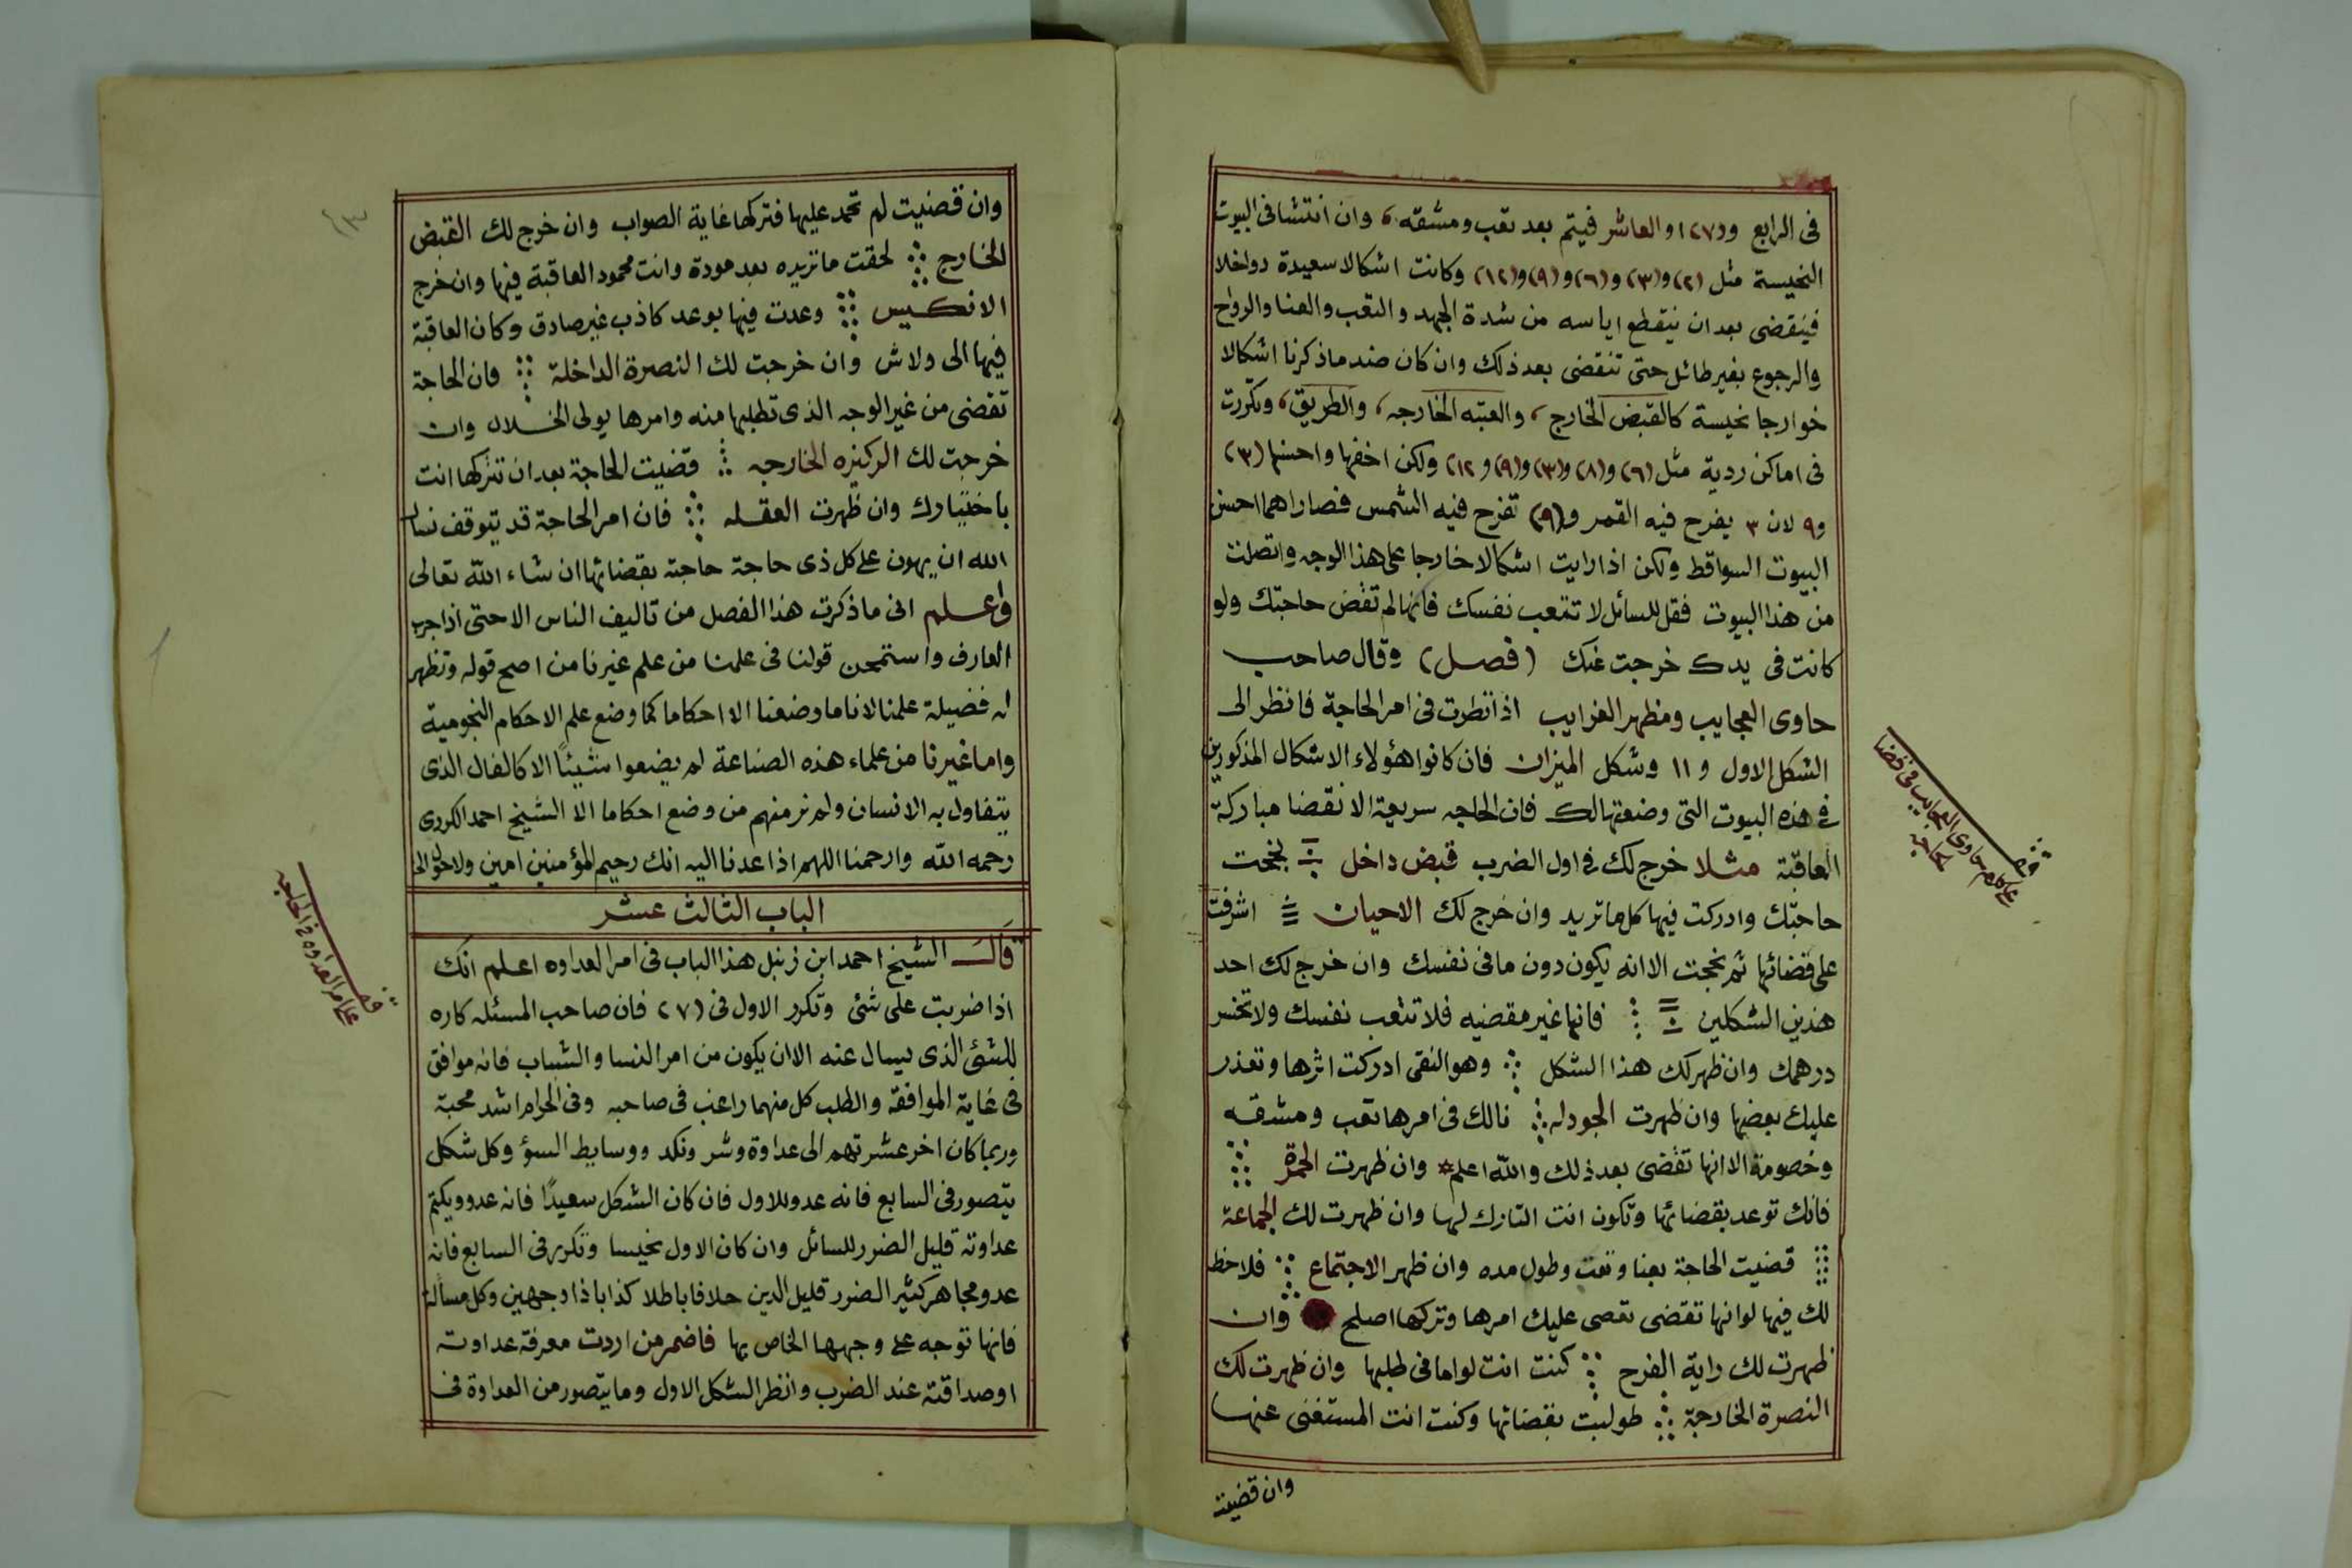 فى الرابع و(٢٧) والعاشر فيتم بعد تعب ومشقه، وان انتشا فى البيوت
النحيسة مثل (٢) و(٣) و(٦) و(٩) و(١٢) وكانت اشكالا سعيدة دواخلا
فينقضى بعد ان ينقطع اياسه من شدة الجهد والتعب والعنا والرواح
والرجوع بغير طائل حتى تنقضى بعد ذلك وان كان ضد ما ذكرنا اشكالا
خوارجا نحيسة كالقبض الخارج، والعتبه الخارجه، والطريق، وتكررت
فى اماكن ردية مثل (٦) و(٨) و(٣) و(٩) و(١٢) ولكن اخفها واحسنها (٣)
و٩ لان ٣ يفرح فيه القمر و(٩) تفرح فيه الشمس فصارا هما احسن
البيوت السواقط ولكن اذا رايت اشكالا خارجا على هذا الوجه واتصلت
من هذا البيوت فقل للسائل لا تتعب نفسك فانها لم تقض حاجتك ولو
كانت فى يدك خرجت عنك (فصل) وقال صاحب
حاوى العجايب ومظهر الغرايب اذا نظرت فى امر الحاجة فانظر الى
الشكل الاول و ١١ وشكل الميزان فان كانوا هؤلاء الاشكال المذكورين
فى هذه البيوت التى وضعتها لك فان الحاجه سريعة الانقضا مباركة
العاقبة مثلا خرج لك فى اول الضرب قبض داخل نجحت
حاجتك وادركت فيها كل ما تريد وان خرج لك الاحيان اشرفت
على قضائها ثم نجحت الا انه يكون دون ما فى نفسك وان خرج لك احد
هذين الشكلين فانها غير مقضيه فلا تتعب نفسك ولا تخسر
درهمك وان ظهر لك هذا الشكل وهو النقى ادركت اثرها وتعذر
عليك بعضها وان ظهرت الجودله نالك فى امرها تعب ومشقه
وخصومة الا انها تقضى بعد ذلك والله اعلم وان ظهرت الحمرة
فانك توعد بقضائها وتكون انت التارك لها وان ظهرت لك الجماعة
قضيت الحاجة بعنا وتعت وطول مده وان ظهر الاجتماع فلا حظ
لك فيها لو انها تقضى تعصى عليك امرها وتركها اصلح وان
ظهرت لك راية الفرح كنت انت لواما فى طلبها وان ظهرت لك
النصرة الخارجة طولبت بقضائها وكنت انت المستغنى عنها
وان قضيت
قف
على كلام حاوى العجايب فى قضا
الحاجه
وان قضيت لم تحمد عليها فتركها غاية الصواب وان خرج لك القبض
الخارج لحقت ما تريده بعد مودة وانت محمود العاقبة فيها وان خرج
الانكيس وعدت فيها بوعد كاذب غير صادق وكان العاقبة
فيها الى ولاش وان خرجت لك النصرة الداخلة فان الحاجة
تقضى من غير الوجه الذى تطلبها منه وامرها يولى الخلال وان
خرجت لك الركيزه الخارجه قضيت الحاجة بعد ان تتركها انت
باختيارك وان ظهرت العقله فان امر الحاجة قد يتوقف نسال
الله ان يهون على كل ذى حاجة حاجته بقضائها ان شاء الله تعالى
واعلم انى ما ذكرت هذا الفصل من تاليف الناس الا حتى اذا جرب
العارف واستمحن قولنا فى علمنا من علم غيرنا من اصح قوله وتظهر
له فضيلة علمنا لانا ما وضعنا الا احكاما كما وضع علم الاحكام النجومية
واما غيرنا من علماء هذه الصناعة لم يضعوا شيئًا الا كالفال الذى
يتفاول به الانسان ولم نر منهم من وضع احكاما الا الشيخ احمد الكردى
رحمه الله وارحمنا اللهم اذا عدنا اليه انك رحيم المؤمنين امين ولا حول الخ
الباب الثالث عشر
قال الشيخ احمد ابن زنبل هذا الباب فى امر العداوه اعلم انك
اذا ضربت على شئ وتكرر الاول فى (٢٧) فان صاحب المسئله كاره
للشئ الذى يسال عنه الا ان يكون من امر النسا والشباب فانه موافق
فى غاية الموافقه والطلب كل منهما راغب فى صاحبه وفى الحرام اشد محبة
وربما كان اخر عشرتهم الى عداوة وشر ونكد ووسايط السوء وكل شكل
يتصور فى السابع فانه عدو للاول فان كان الشكل سعيدًا فانه عدو ويكتم
عداوته قليل الضرر للسائل وان كان الاول نحيسا وتكرر فى السابع فانه
عدو مجاهر كثير الضرر قليل الدين حلافا باطلا كذابا ذا وجهين وكل مسألة
فانها توجه على وجهها الخاص بها فاضمر من اردت معرفة عداوته
او صداقته عند الضرب وانظر الشكل الاول وما يتصور من العداوة فى
قف
على امر العداوه فى الحاجه